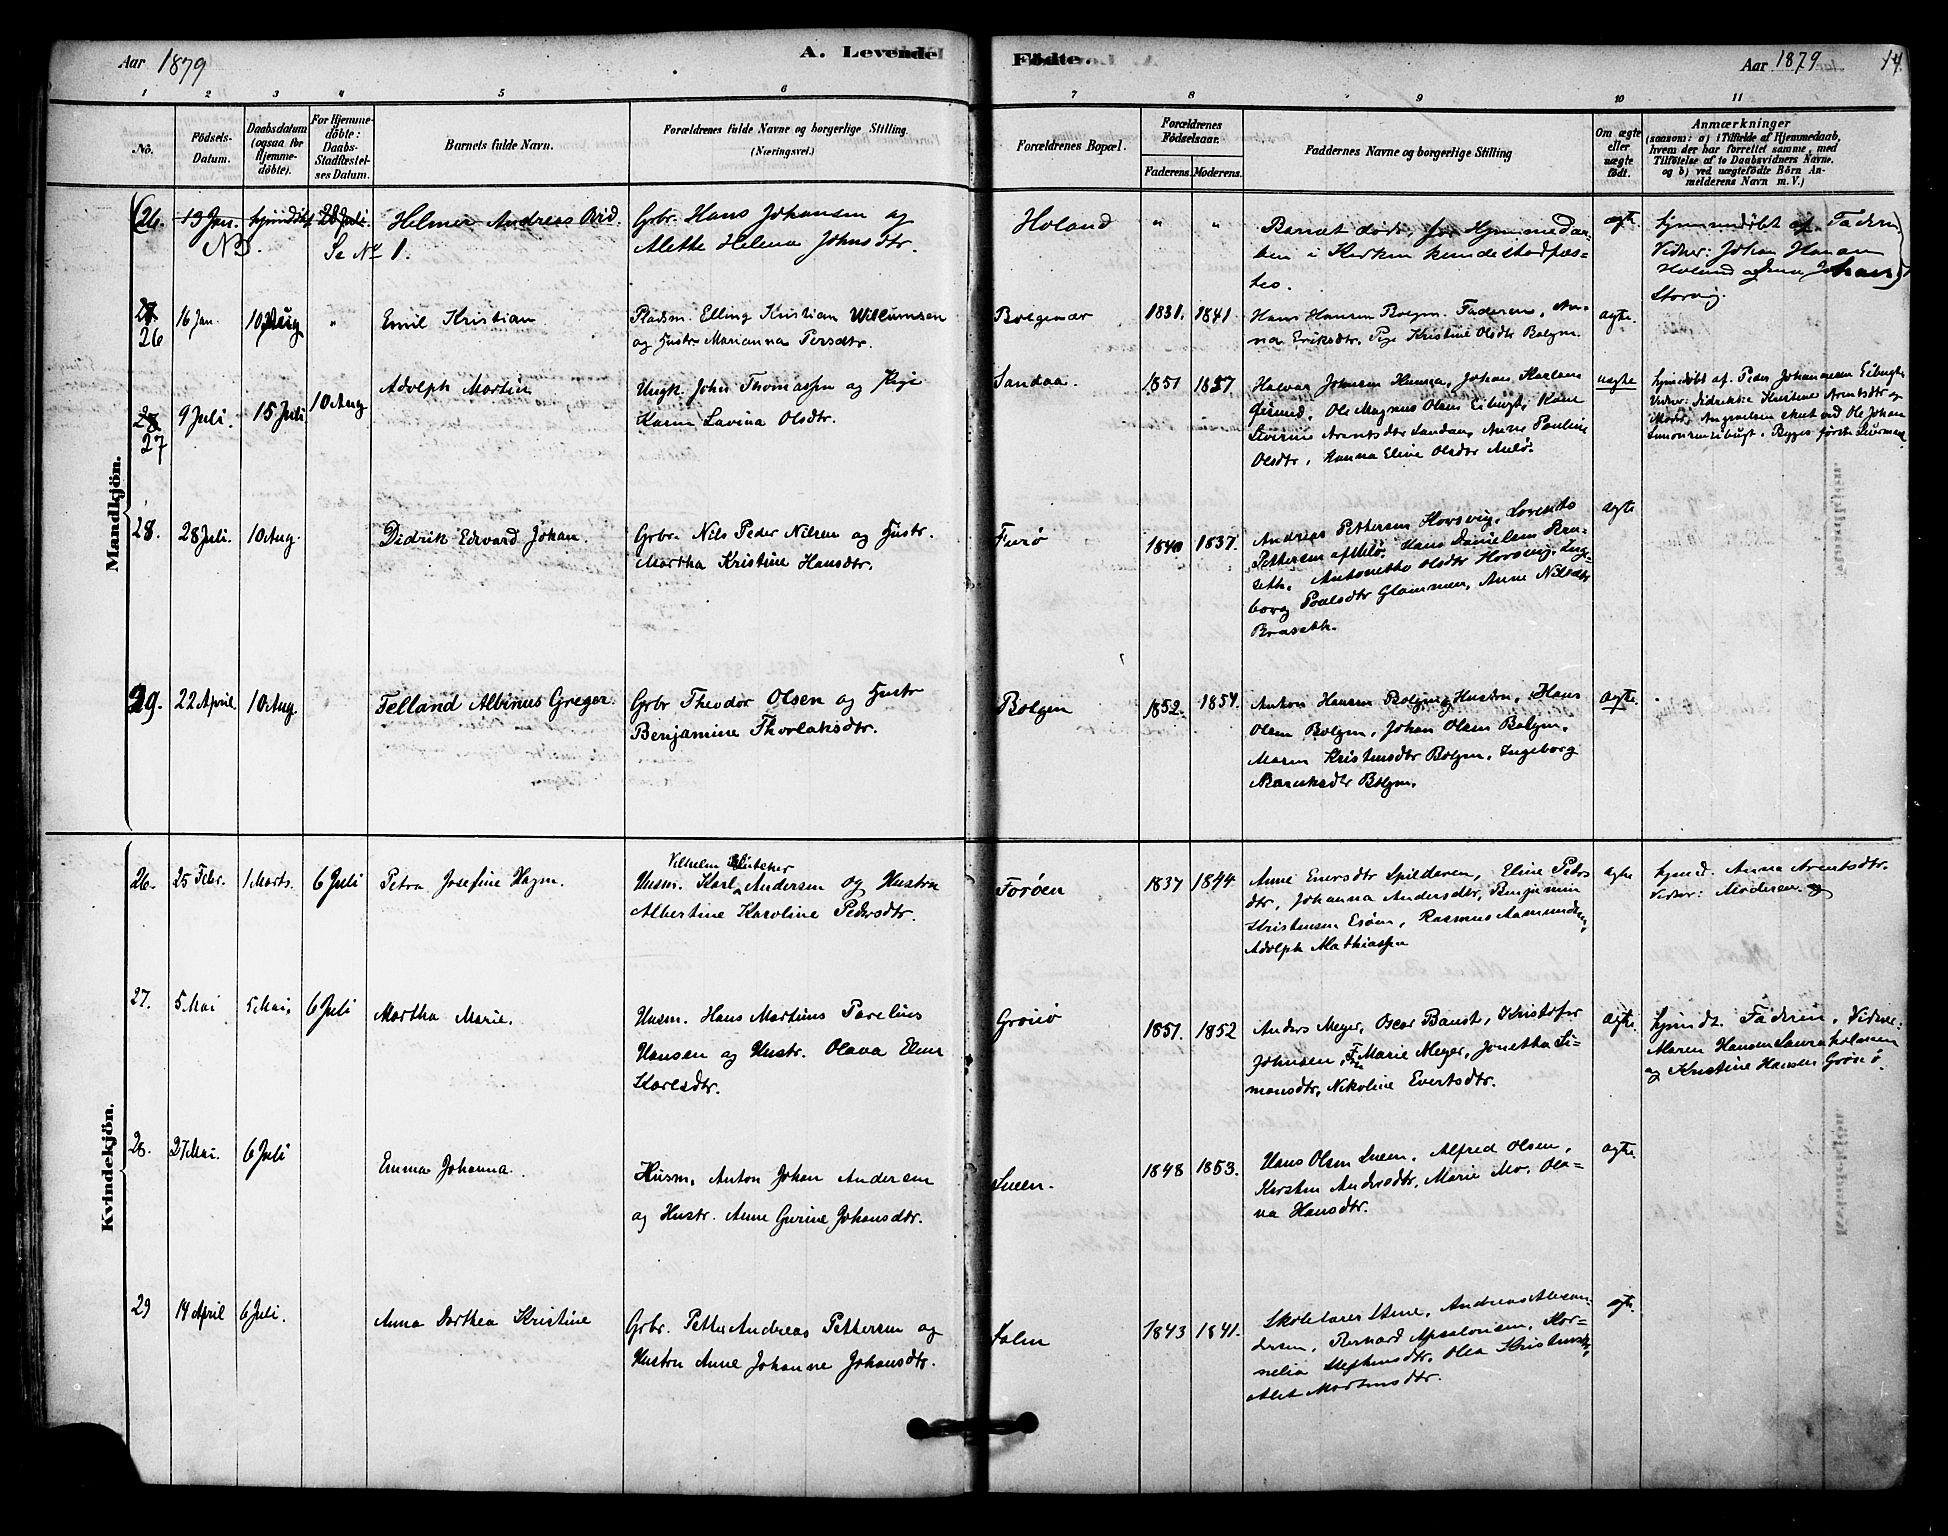 Aar 1879
A. Levende
Fødte.
Aar 1879
14
1 2 3 4 5 6 7 8 9 10 11
No.
Födsels-
Datum.
Daabsdatum
(ogsaa for
Hjemme-
döbte).
For Hjemme-
döbte:
Daabs-
Stadfæstel-
ses Datum.
Barnets fulde Navn.
Forældrenes fulde Navne og borgerlige Stilling.
(Næringsvei.)
Forældrenes Bopæl.
Forældrenes
Födselsaar.
Faderens. Moderens.
Faddernes Navne og borgerlige Stilling
Om ægte
eller
uægte
födt.
Anmærkninger
(saasom: a) i Tilfælde af Hjemmedaab,
hvem der har forrettet samme, med
Tilföielse af to Daabsvidners Navne.
og b) ved uægtefödte Börn An-
melderens Navn m. V.)
Mandkjön.
26. 13 Jan. 20 Juli Helmer Andreas
NB. Se No 1.
Grbr. Hans Johansen og
Alette Helena Johnsdtr.
Holand " "
Barnet döde, før Hjemmedaa-
ben i Kirken kunde stadfæs-
tes.
ægte
hjemmedøbt af Faderen
Vidner: Johan Hansen
Holand og Johans
Storvig.
26 16 Jan. 10 Aug. " Emil Kristian
Pladsm. Elling Kristian Willumsen
og Hustr. Marianna Persdtr.
Bolgenær 1831. 1841.
Hans Hansen Bolgen. Faderen, An-
na Eriksdtr. Pige Kristine Olsdtr Bolgen
ægte.
27 9 Juli. 15 Juli 10 Aug Adolph Martin
Ungk. John Thomassen og Pige
Karen Lavina Olsdtr.
Sandaa. 1851 1857
Halvar Johnsen, Johan
Ole Magnus Olsen Eibugt, Karen
Severine Arentsdtr Sandaa, Anne Pauline
Olsdtr, Hanna Eline Olsdtr
uægte
hjemdøbt af Peder Johannesen Eibugt
Vidner: Didrikke Kristine Arentsdtr og
Moder. Angivelsen skeet ved Ole Johan
Simonsen Eibugt. Begges første Leiermaal
28. 28 Juli. 10 Aug. Didrik Edvard Johan.
Grbr. Nils Peder Nilsen og Hustr.
Martha Kristine Hansdtr.
Furø 1840 1837.
Andreas Pettersen Horsvig, Lorents
Pettersen, Hans Danielsen Bra-
seth, Antonette Olsdtr Horsvig, Inge-
borg Poulsdtr Glommen, Anne Nilsdtr
Braseth.
ægte
29. 22 April. 10 Aug. Telland Albinus Greger.
Grbr Theodor Olsen og Hustr
Benjamine Thorlaksdtr.
Bolgen 1852. 1854.
Anton Hansen Bolgen og Hustru, Hans
Olsen Bolgen, Johan Olsen Bolgen,
Maren Kristensdtr Bolgen, Ingeborg
Bolgen.
ægte.
Kvindekjön.
26. 25 Febr. 1 Marts. 6 Juli Petra Josefine Hagen.
Vilhelm
Husm. Karl Andersen og Hustru
Albertine Karoline Pedersdtr.
Forøen 1837 1844
Anne Enersdtr Spilderen, Eline Peders-
dtr, Johanna Andersdtr, Benjamin
Kristensen Esøen, Rasmus Aamundsen,
Adolph Mathiassen
ægte
hjemd. Anna Arentsdtr.
Vidner: Moderen og
27. 5 Mai 5 Mai. 6 Juli Martha Marie.
Husm. Hans Martinus Parelius
Hansen og Hustr. Olava Elen
Karlsdtr.
Grønø 1851. 1852
Anders Meyer, Oscar Banst, Kristofer
Johnsen, Fru Marie Meyer, Jonetha Si-
monsdtr, Nikoline Evertsdtr.
ægte.
hjemdt. Faderen, Vidner:
Maren Hansen
og Kristine Hansen Grønø.
28. 27 Mai. 6 Juli Emma Johanna.
Husm. Anton Johan Andersen
og Hustr. Anne Gurine Johansdtr.
Sneen. 1848 1853.
Hans Olsen Sneen, Alfred Olsen,
Karsten Andersdtr, Marie Mo, Ola-
va Hansdtr.
ægte.
29 14 April 6 Juli. Anna Dorthea Kristine
Grbr. Petter Andreas Pettersen og
Hustru Anne Johanne Johansdtr.
1843 1841.
Skolelærer Stene, Andreas
dersen, Bernard Apsalonsen, Kor-
nelia Steffensdtr, Olea
Alet Mortensdtr.
ægte.